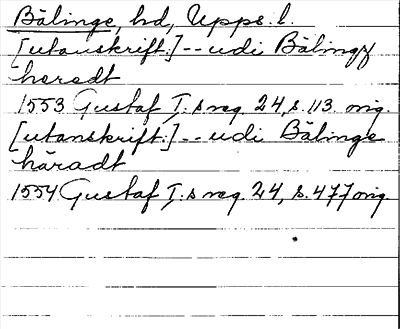 Bälinge, hd, Upps. l.
[utanskrift:] -- udi Bälingx
heredt
1553 Gustaf I:s reg. 24, s. 113 orig.
[utanskrift:] -- udi Bälinge
häradt
1554 Gustaf I:s reg. 24, s. 477 orig.